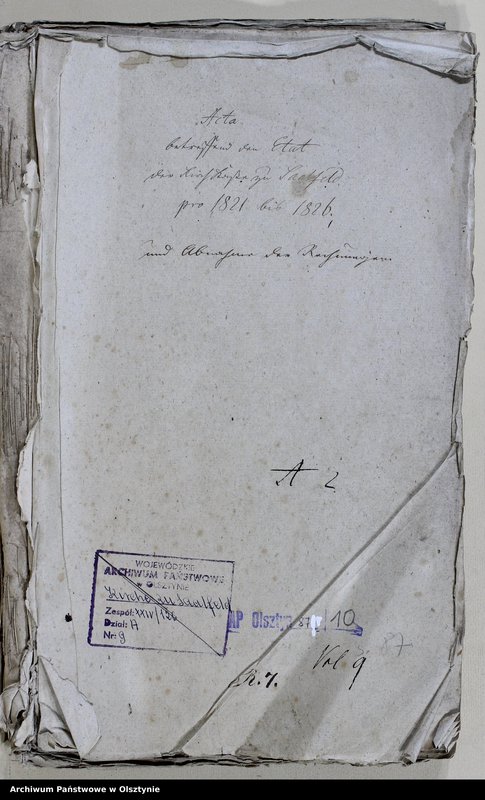 Acta
betreffend den Etat
der Kirchkasse zu Saalfeld
pro 1821 bis 1826,
und Abnahme der Rechnungen.
A 2
WOJEWÓDZKIE
ARCHIWUM PAŃSTWOWE
w OLSZTYNIE
Kirche zu Saalfeld
Zespół: XXIV/136
Dział: A
Nr: 9
AP Olsztyn 87/10
87
Vol 9
R. 7.
Archiwum Państwowe w Olsztynie